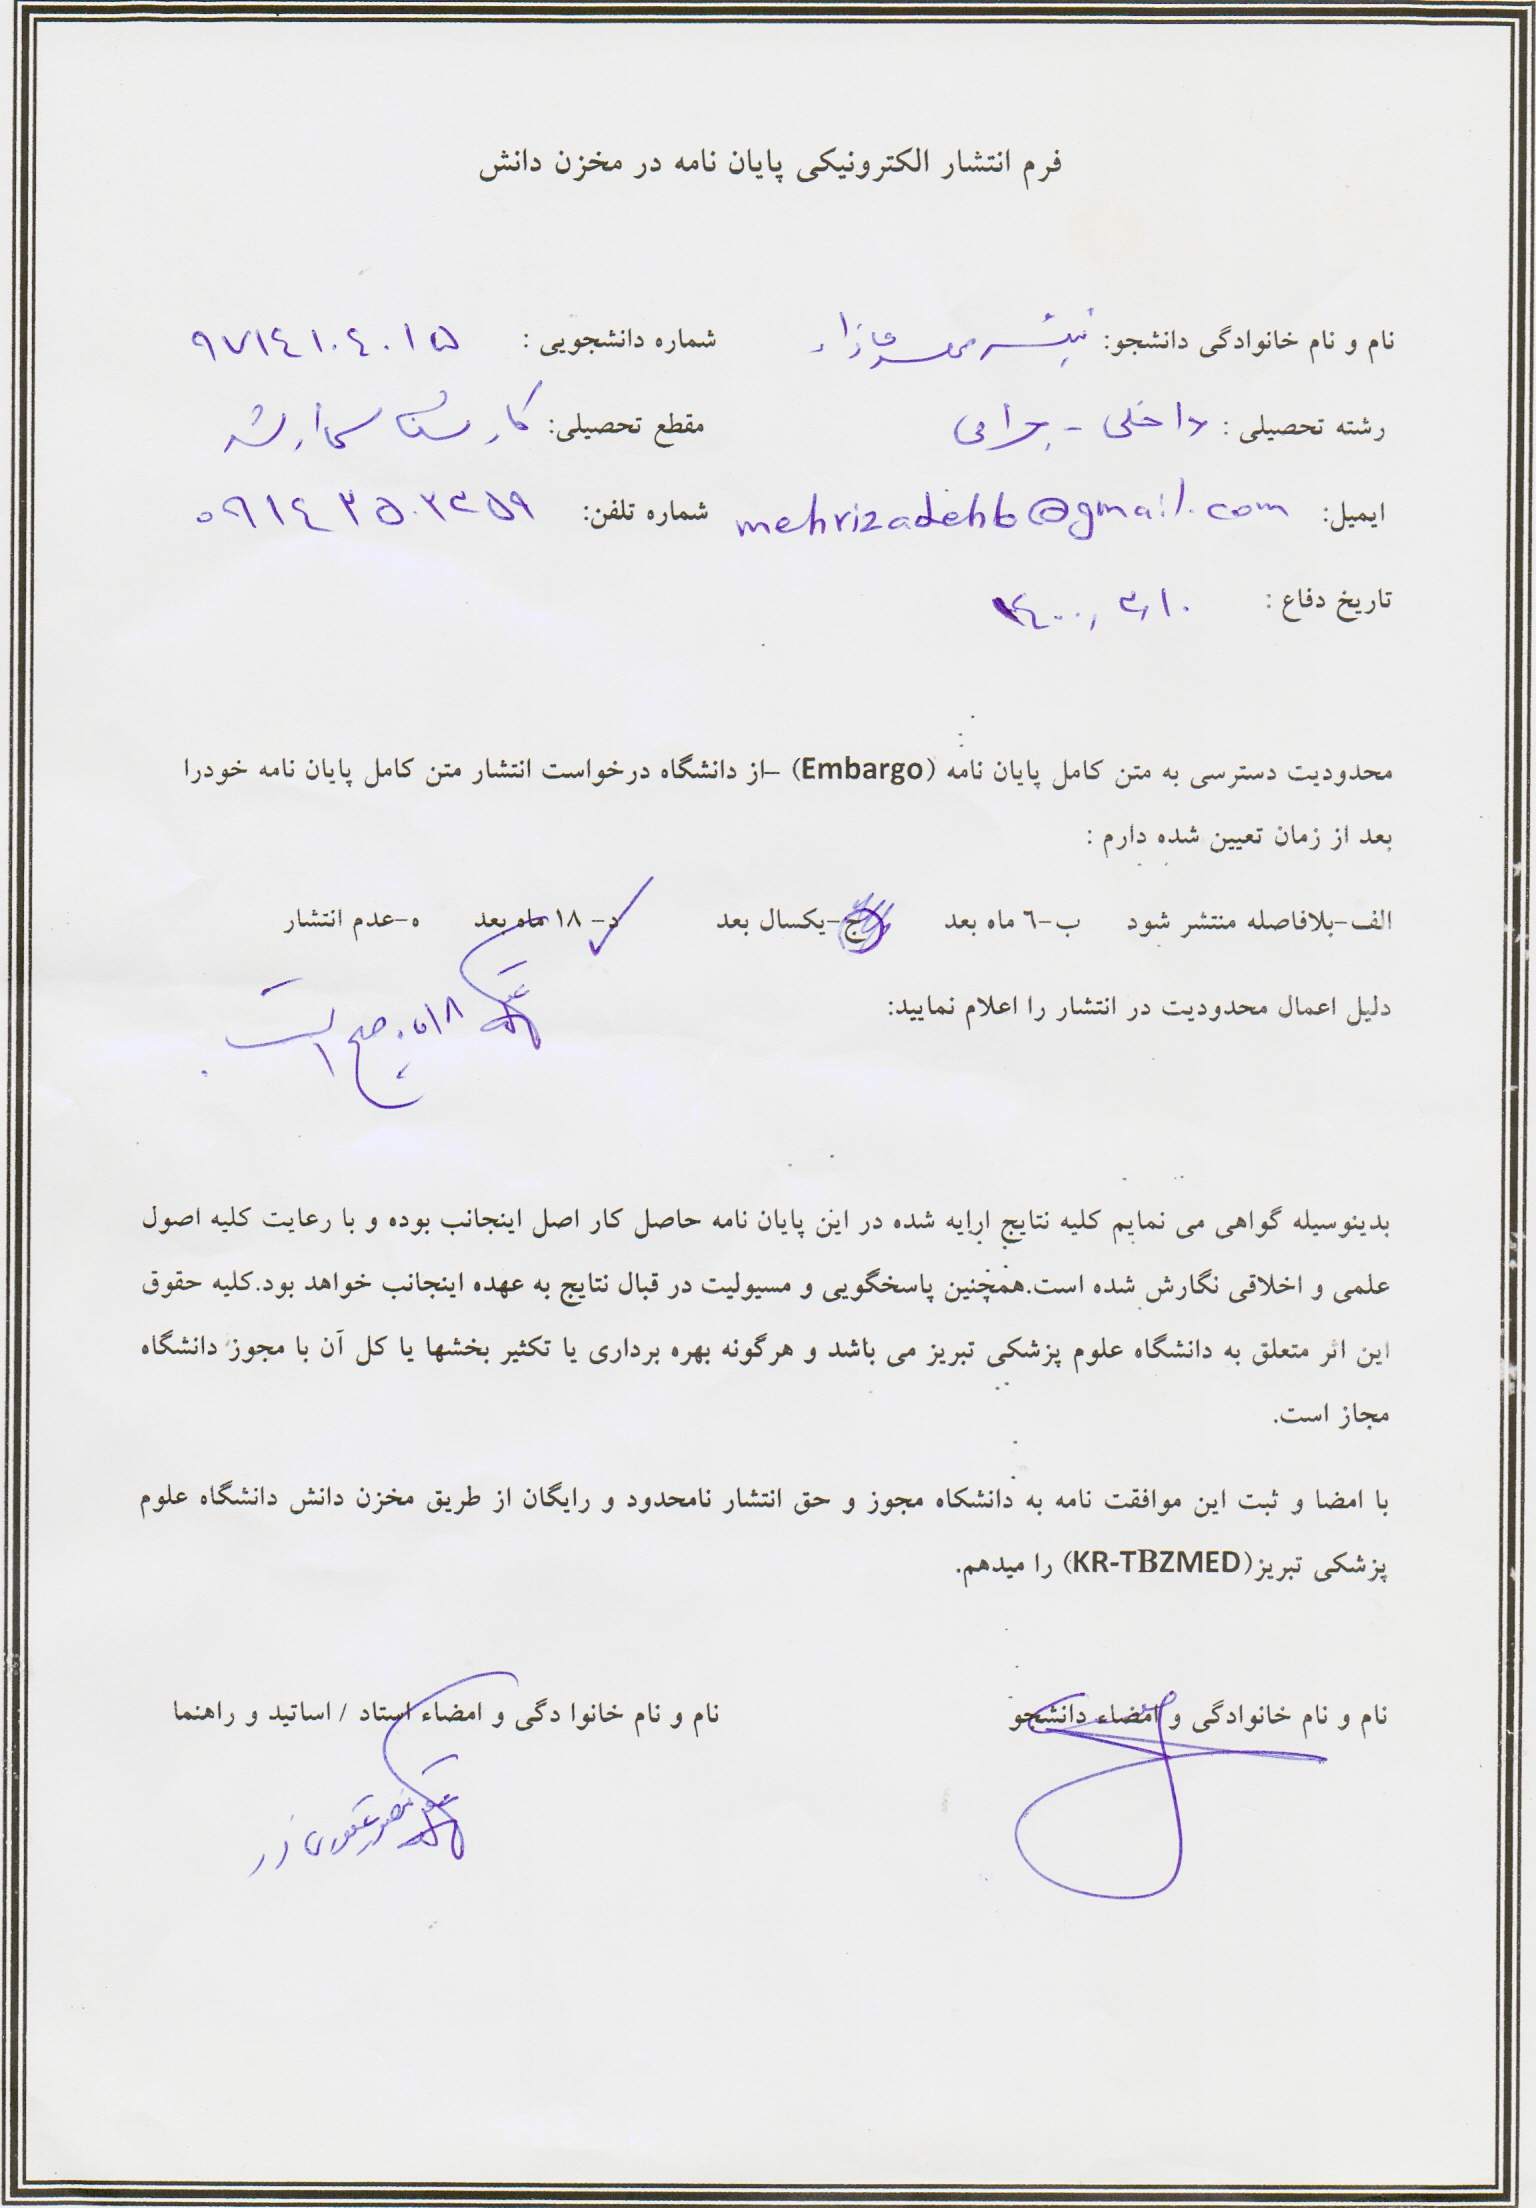 فرم انتشار الکترونیکی پایان نامه در مخزن دانش
نام و نام خانوادگی دانشجو: شماره دانشجویی : ۹۷۱٤۱۰٤۰۱۵
رشته تحصیلی : داخلی - جراحی مقطع تحصیلی: کارشناسی ارشد
ایمیل: mehrizadehb@gmail.com شماره تلفن: ۰۹۱٤۳۵۰۲۳۵۹
تاریخ دفاع : ۱٤۰۰,۳,۱۰
محدودیت دسترسی به متن کامل پایان نامه (Embargo) –از دانشگاه درخواست انتشار متن کامل پایان نامه خودرا
بعد از زمان تعیین شده دارم :
الف-بلافاصله منتشر شود ب-٦ ماه بعد ج-یکسال بعد د- ۱۸ ماه بعد ه-عدم انتشار
دلیل اعمال محدودیت در انتشار را اعلام نمایید:
۱۸ ماه صحیح است
بدینوسیله گواهی می نمایم کلیه نتایج ارایه شده در این پایان نامه حاصل کار اصل اینجانب بوده و با رعایت کلیه اصول
علمی و اخلاقی نگارش شده است.همچنین پاسخگویی و مسیولیت در قبال نتایج به عهده اینجانب خواهد بود.کلیه حقوق
این اثر متعلق به دانشگاه علوم پزشکی تبریز می باشد و هرگونه بهره برداری یا تکثیر بخشها یا کل آن با مجوز دانشگاه
مجاز است.
با امضا و ثبت این موافقت نامه به دانشکاه مجوز و حق انتشار نامحدود و رایگان از طریق مخزن دانش دانشگاه علوم
پزشکی تبریز(KR-TBZMED) را میدهم.
نام و نام خانوادگی و امضاء دانشجو نام و نام خانوا دگی و امضاء استاد / اساتید و راهنما